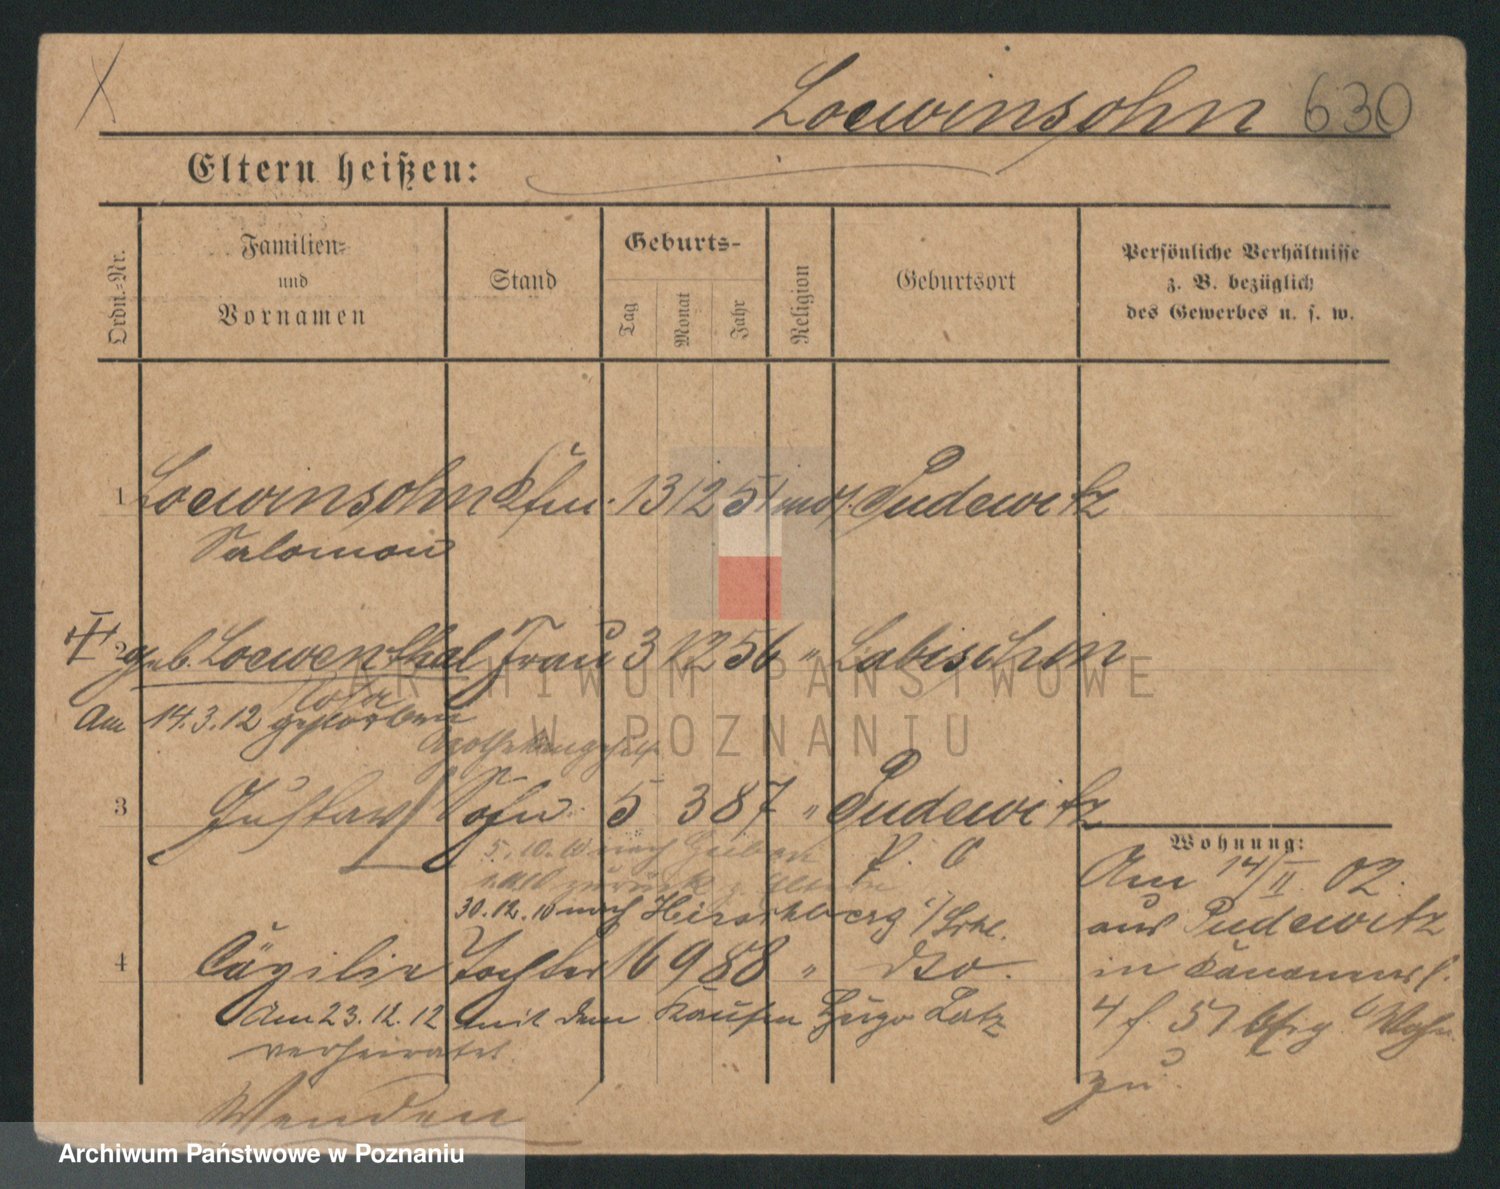 Loewinsohn 630
Eltern heißen:
Ordn.-Nr.
Familien-
und
Vornamen
Stand
Geburts-
Tag
Monat
Jahr
Religion
Geburtsort
Persönliche Verhältnisse
z. B. bezüglich
des Gewerbes u. s. w.
1 Loewinsohn Kfm. 13 12 51 mos. Pudewitz
Salomon
2 geb. Loewenthal Frau 3 12 56 " Labischin
Rosa
Am 14.3.12 gestorben
3 Gustav Sohn 5 3 87 " Pudewitz
5.10.10 nach
zurück z. Eltern
30.12.10 nach Hirschberg i/Schl.
4 Cäzilie Tochter 16 9 88 " dso.
Am 23.12.12 mit dem Kaufm Hugo Latz
verheiratet.
Wenden!
Wohnung:
Am 14/II 02.
aus Pudewitz
in
4 f. 57 Wohn.
zu.
ARCHIWUM PAŃSTWOWE
W POZNANIU
Archiwum Państwowe w Poznaniu